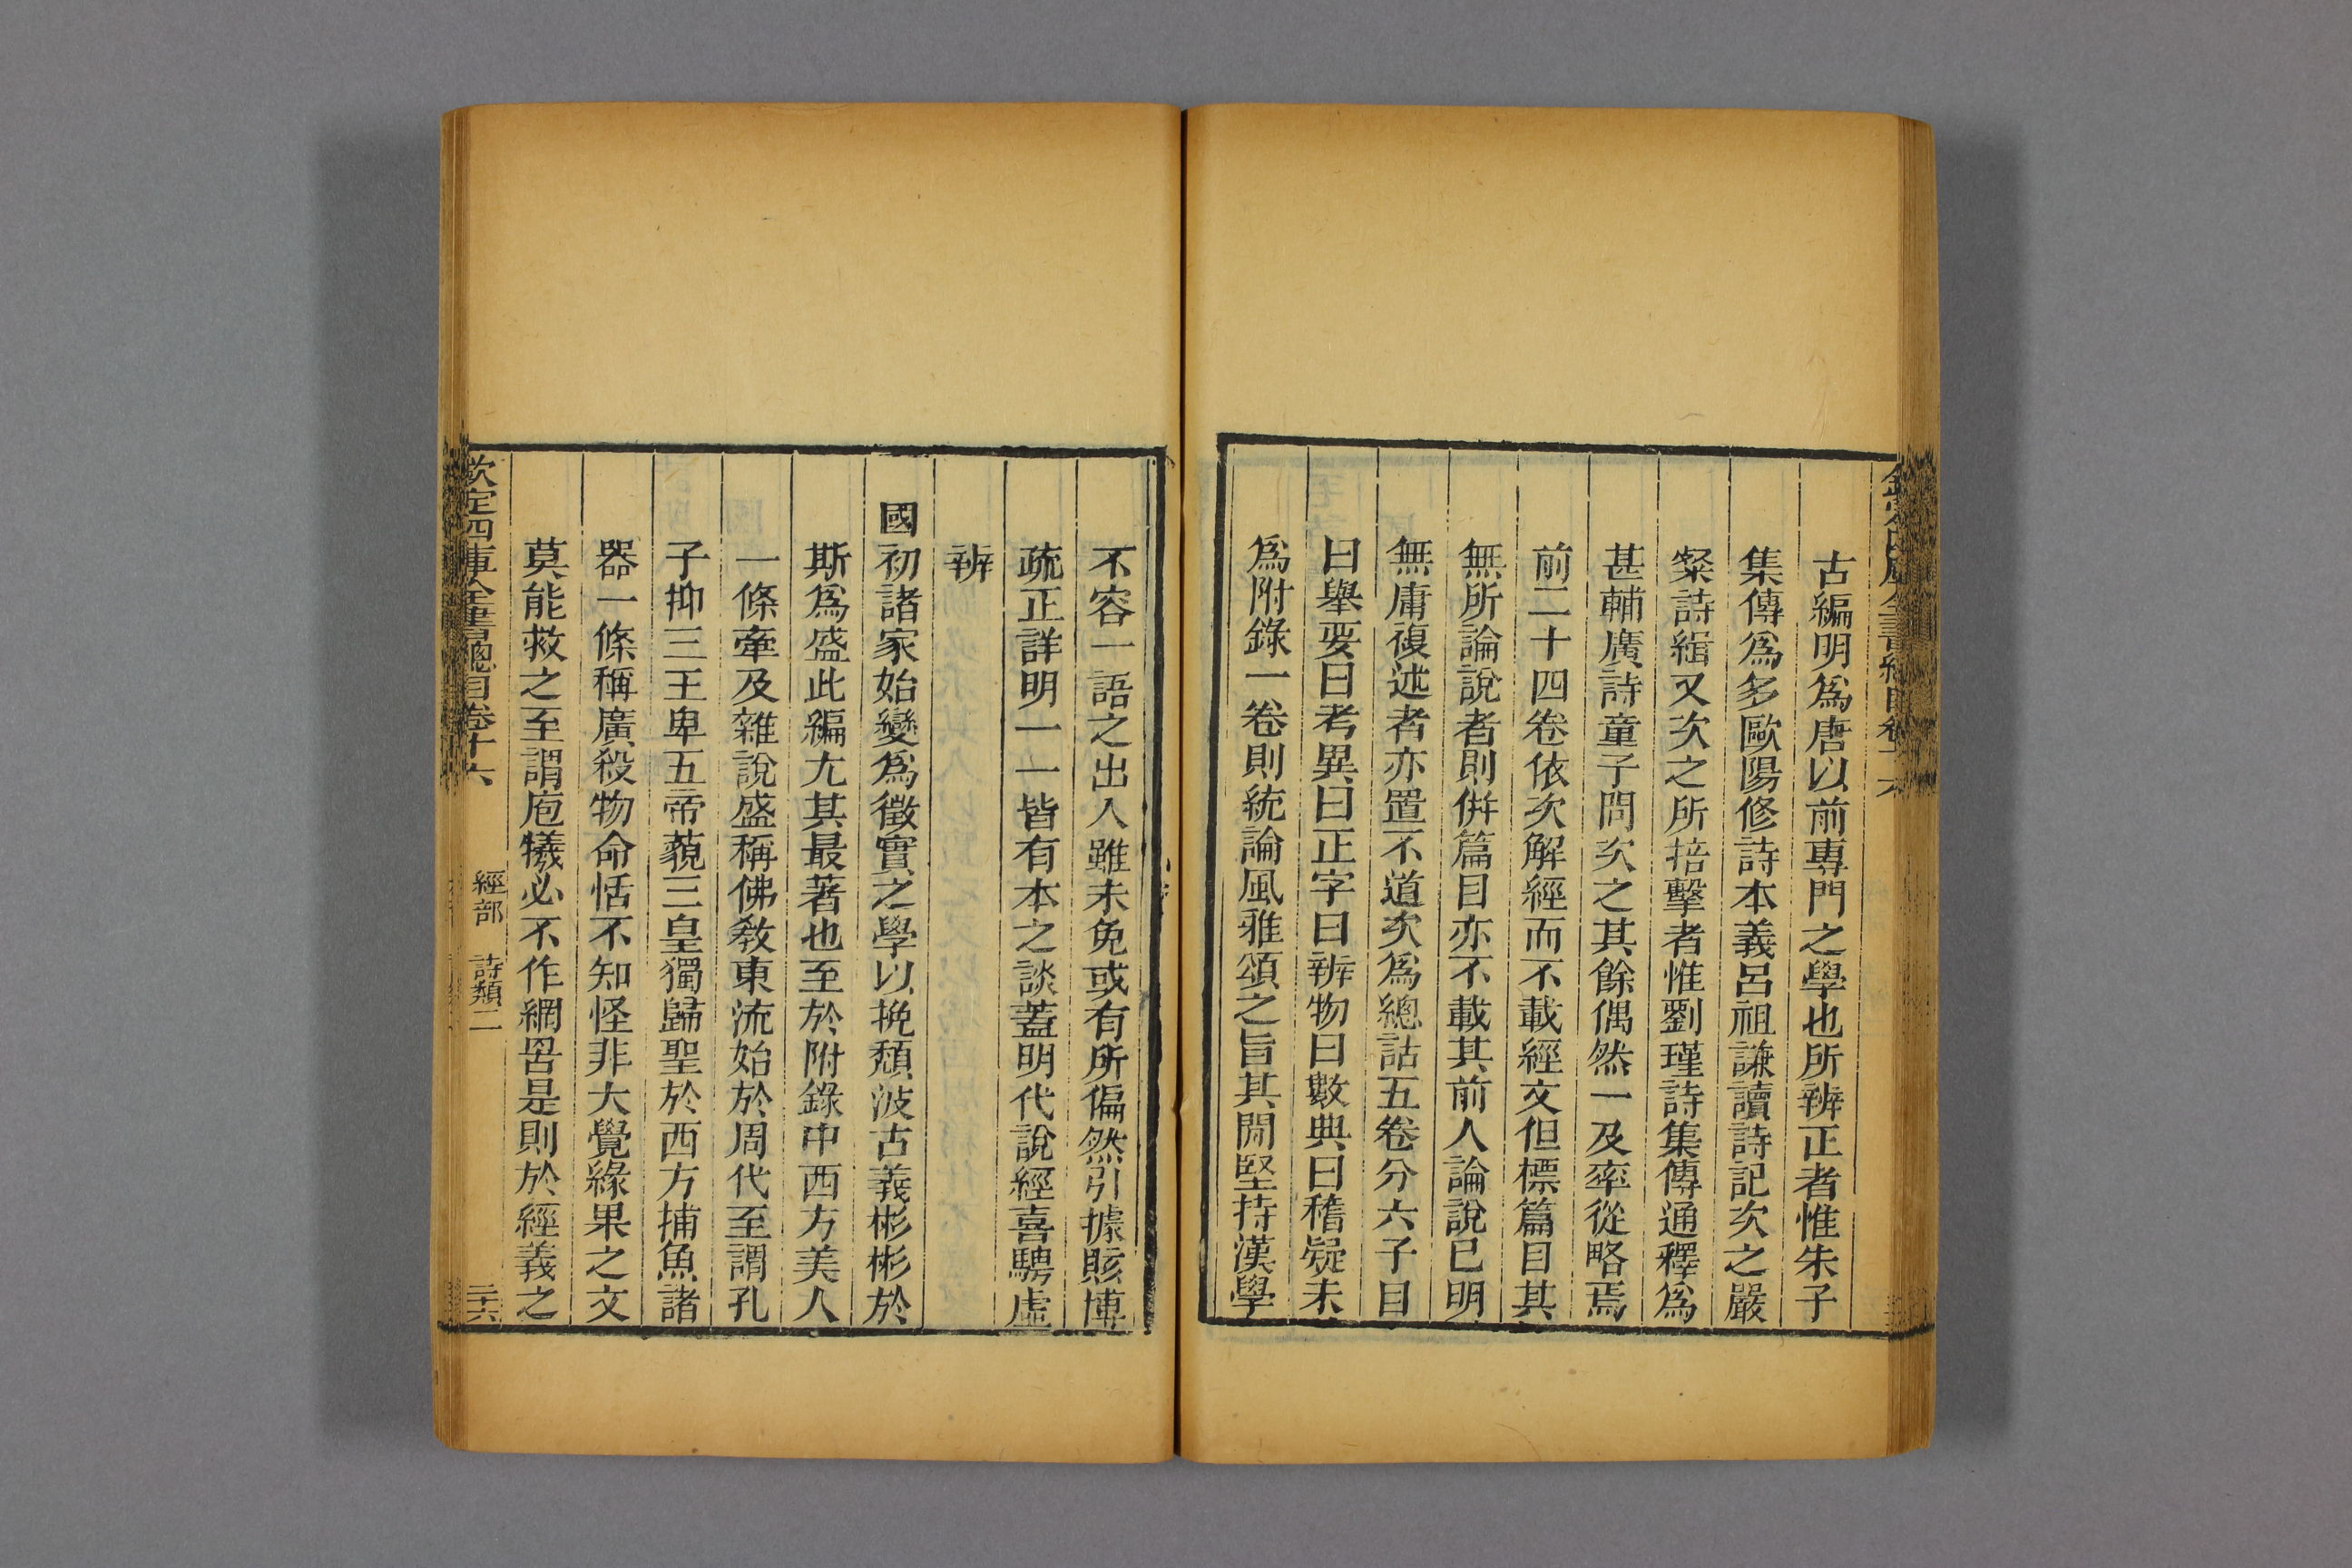 古編明爲唐以前專門之學也所辨正者惟朱子
集傳爲多歐陽修詩本義呂祖謙讀詩記次之嚴
粲詩緝又次之所掊擊者惟劉瑾詩集傳通釋爲
甚輔廣詩童子問次之其餘偶然一及率從略焉
前二十四卷依次解經而不載經文但標篇目其
無所論說者則倂篇目亦不載其前人論說已明
無庸複述者亦置不道次爲總詁五卷分六子目
曰舉要曰考異曰正字曰辨物曰數典曰稽疑末
爲附錄一卷則統論風雅頌之旨其閒堅持漢學
不容一語之出入雖未免或有所偏然引據賅博
疏正詳明一一皆有本之談蓋明代說經喜騁虛
辨
國初諸家始變爲徵實之學以挽頹波古義彬彬於
斯爲盛此編尤其最著也至於附錄中西方美人
一條牽及雜說盛稱佛敎東流始於周代至謂孔
子抑三王卑五帝藐三皇獨歸聖於西方捕魚諸
器一條稱廣殺物命恬不知怪非大覺緣果之文
莫能救之至謂庖犧必不作網罟是則於經義之
欽定四庫全書總目卷十六 經部 詩類二 二十六